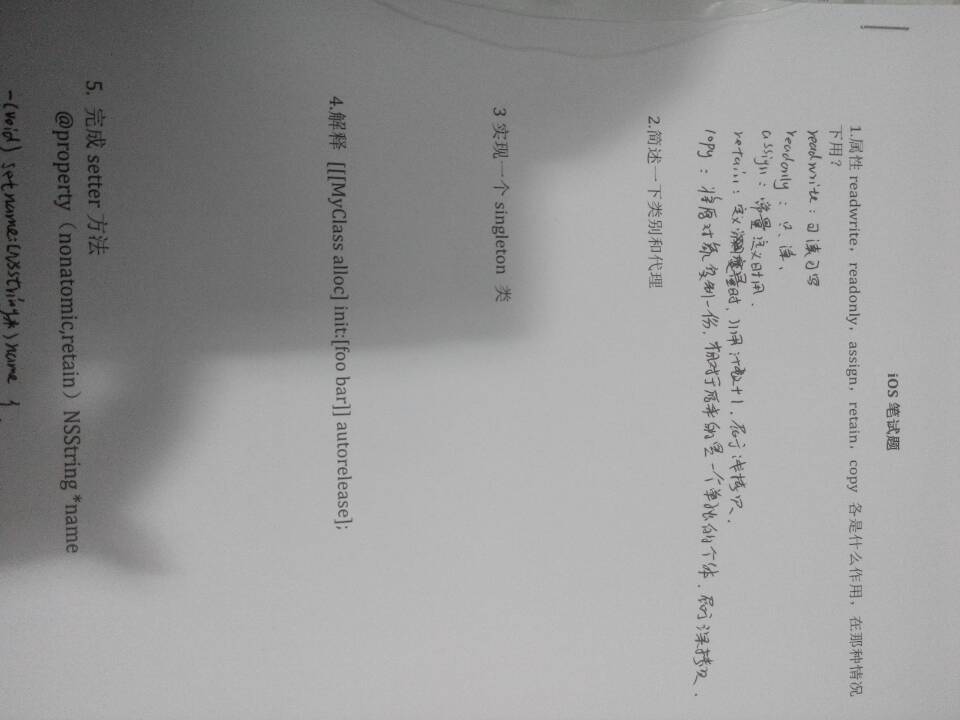 iOS 笔试题
1.属性 readwrite，readonly，assign，retain，copy 各是什么作用，在那种情况
下用？
readwrite：可读可写
readonly：只读、
assign：常量定义时用．
retain：定义变量时，引用计数+1．属于浅拷贝．
copy：将原对象复制一份，相对于原来的是一个单独的个体．属于深拷贝．
2.简述一下类别和代理
3 实现一个 singleton 类
4.解释 [[[MyClass alloc] init:[foo bar]] autorelease];
5. 完成 setter 方法
@property（nonatomic,retain）NSString *name
-(void) setname:(NSString*) name {